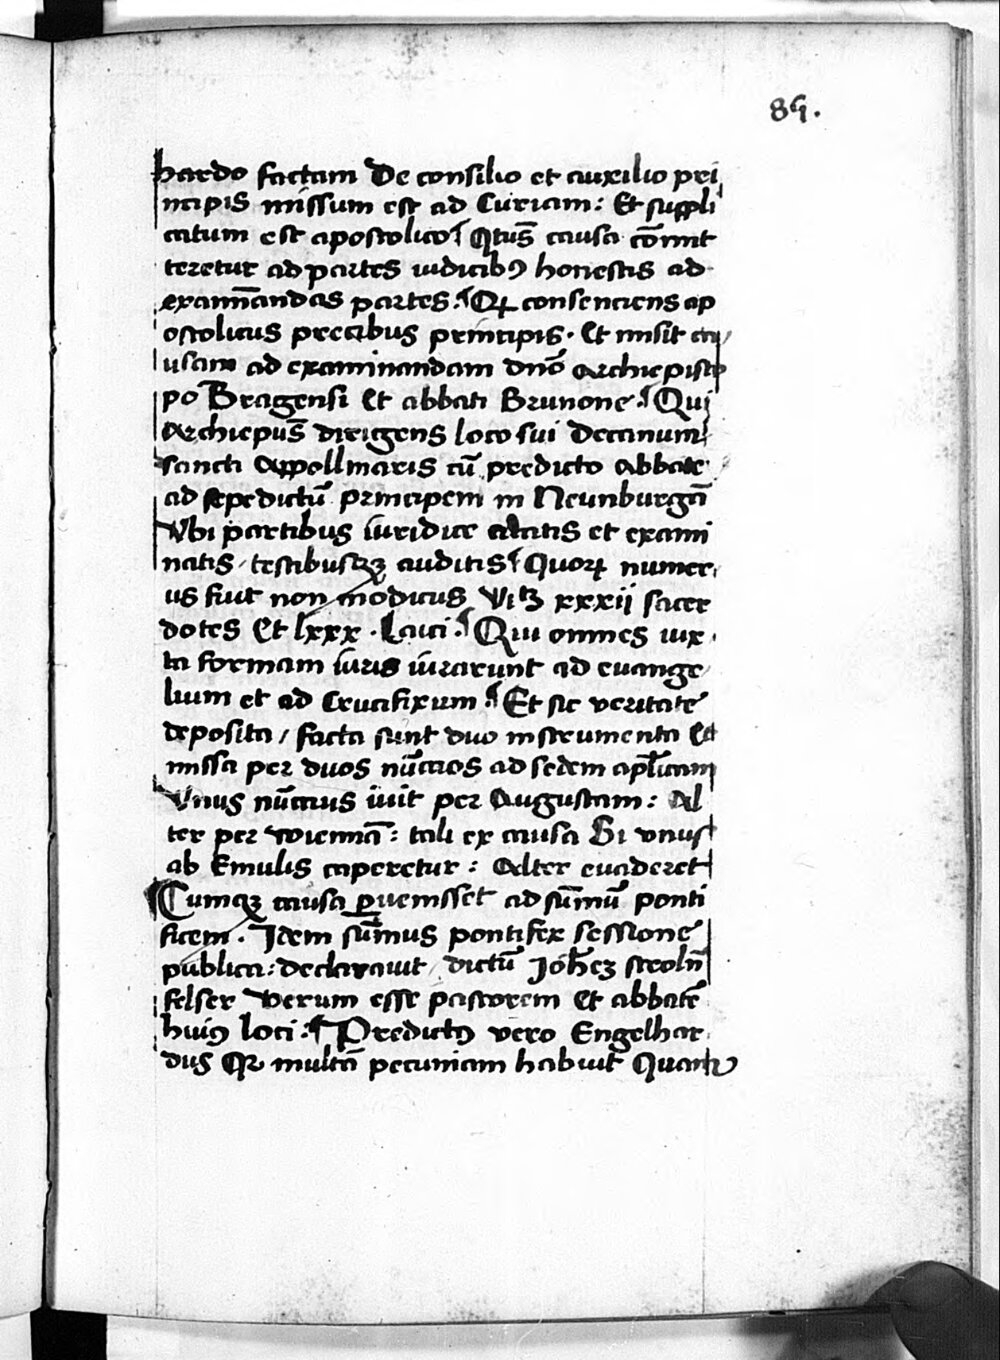 85.
hardo factam De consilio et auxilio pri
ncipis missum est ad Curiam: Et suppli
catum est apostolico Qtus̄ causa cōmit
teretur ad partes iudicibꝯ honestis ad
examīandas partes. Qꝛ consenciens ap
ostolicus precibus principis. Et misit ca
usam ad examinandam dn̄o Archiepisco
po Bragensi Et abbati Brunone. Qui
Archiepus̄ dirigens loco sui Decanum
sancti Appollinaris cū predicto Abbate
ad sepedictū principem in Neunburgā
Vbi partibus iuridice citatis et exami
natis, testibusqꝫ auditis Quoꝝ numer
us fuit non modicus Vitꝫ xxxij sacer
dotes Et lxxx. Laici. Qui omnes iux
ta formam iuris iurarunt ad euange
lium et ad Crucifixum. Et sic veritate
deposita / facta sunt duo instrumenta Et
missa per duos nūcios ad sedem ap̄licam
Vnus nūcius iuit per Augustam: Al
ter per wiennā: tali ex causa Si vnus
ab Emulis caperetur: Alter euaderet
Cumqꝫ causa ꝑuenisset ad sūmū ponti
ficem. Idem sūmus pontifex sessione
publica: declarauit dictū Joh̄eꝫ stroln̄
felser verum esse pastorem Et abbatē
huiꝯ loci: Predictꝯ vero Engelhar
dus Qꝛ multā pecuniam habuit